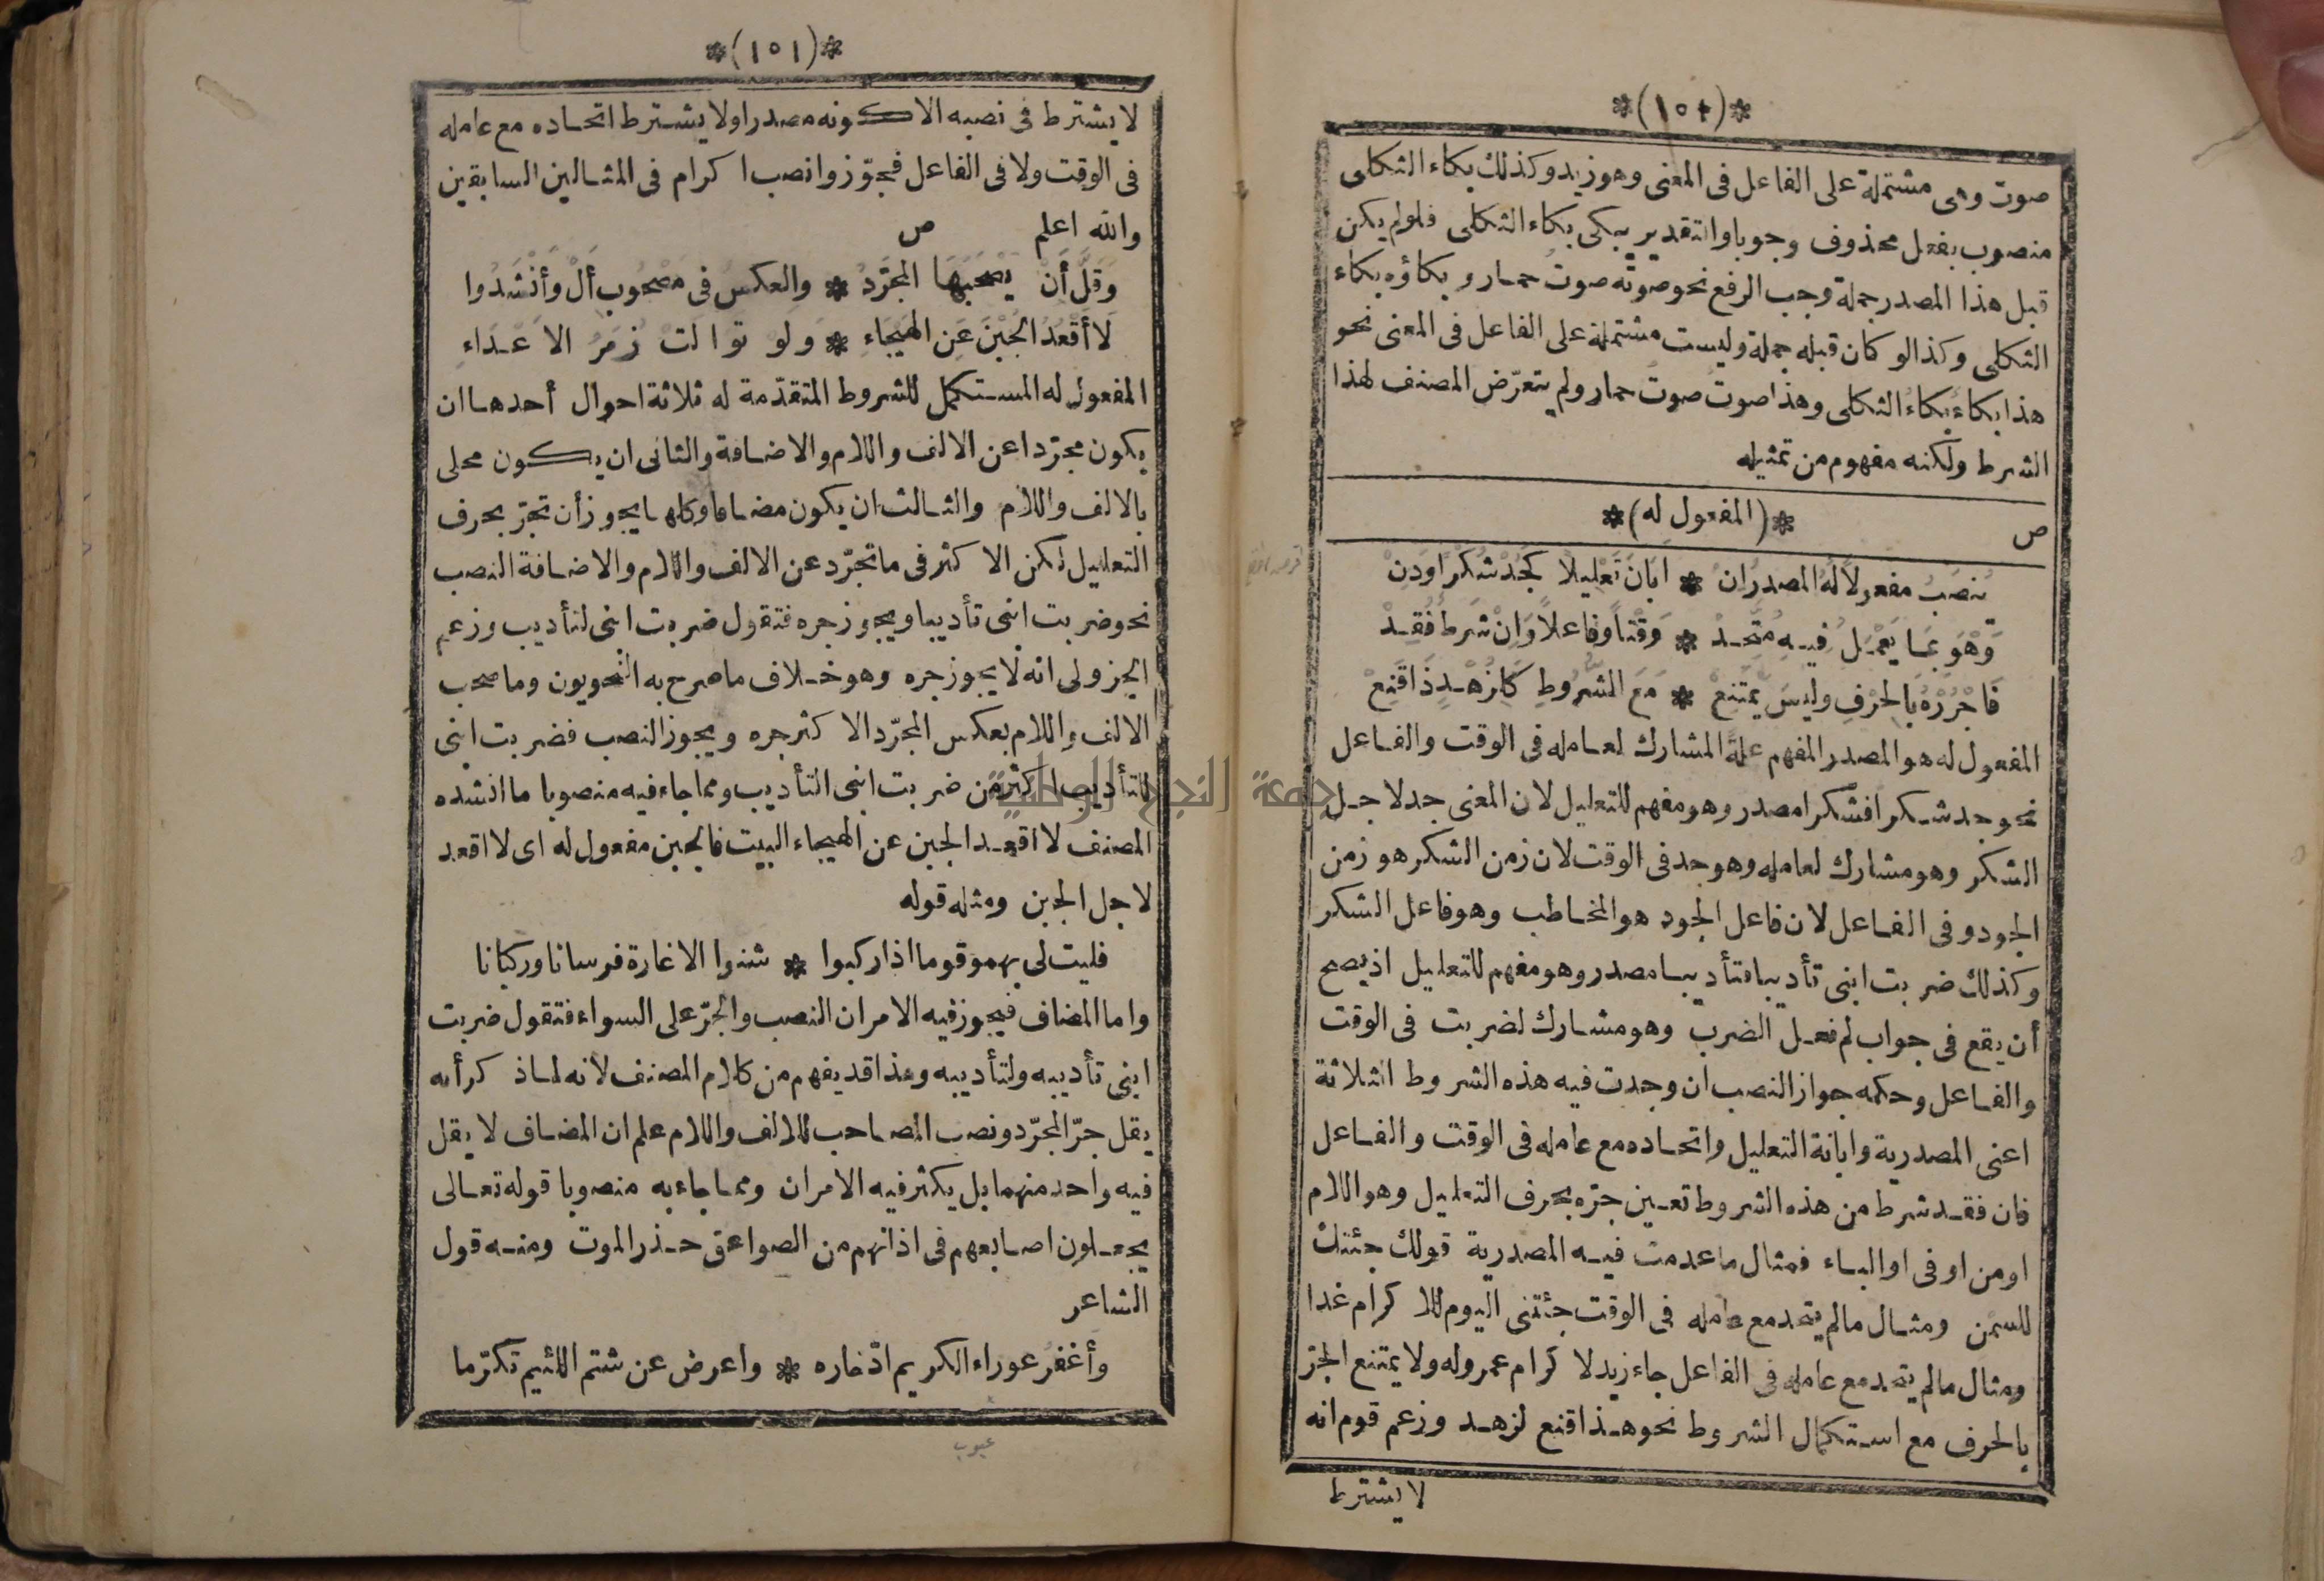 *(١٥٠)*
صوت وهى مشتملة على الفاعل فى المعنى وهو زيد وكذلك بكاء الثكلى
منصوب بفعل محذوف وجوبا والتقدير يبكى بكاء الثكلى فلولم يكن
قبل هذا المصدر جملة وجب الرفع نحو صوته صوت حمار وبكاؤه بكاء
الثكلى وكذا لو كان قبله جملة وليست مشتملة على الفاعل فى المعنى نحو
هذا بكاء بكاء الثكلى وهذا صوت صوت حمار ولم يتعرّض المصنف لهذا
الشرط ولكنه مفهوم من تمثيله
ص *(المفعول له)*
يُنصَبُ مفعولًا لَهُ المصدرُ اِنْ * اَبَانَ تَعْلِيلًا كَجُدْ شُكْرًا وَدِنْ
وَهْوَ بِمَا يَعْمَلُ فِيهِ مُتَّحِدْ * وَقْتًا وفَاعلًا وَاِنْ شَرطٌ فُقِدْ
فَاجْرُرْهُ بِالحرْفِ وليسَ يمتَنِعْ * مَعَ الشُّرُوطِ كَلِزُهْدٍ ذَا قَنِعْ
المفعول له هو المصدر المفهم علةً المشارك لعامله فى الوقت والفاعل
نحو جد شكرا فشكرا مصدر وهو مفهم للتعليل لان المعنى جد لاجل
الشكر وهو مشارك لعامله وهو جد فى الوقت لان زمن الشكر هو زمن
الجود وفى الفاعل لان فاعل الجود هو المخاطب وهو فاعل الشكر
وكذلك ضربت ابنى تأديبا فتأديبا مصدر وهو مفهم للتعليل اذ يصح
أن يقع فى جواب لم فعل الضرب وهو مشارك لضربت فى الوقت
والفاعل وحكمه جواز النصب ان وجدت فيه هذه الشروط الثلاثة
اعنى المصدرية وابانة التعليل واتحاده مع عامله فى الوقت والفاعل
فان فقد شرط من هذه الشروط تعين جرّه بحرف التعليل وهو اللام
او من او فى او الباء فمثال ما عدمت فيه المصدرية قولك جئتك
للسمن ومثال مالم يتحد مع عامله فى الوقت جئتنى اليوم للاكرام غدا
ومثال مالم يتحد مع عامله فى الفاعل جاء زيد لاكرام عمرو له ولا يمتنع الجرّ
بالحرف مع استكمال الشروط نحو هذا قنع لزهد وزعم قوم انه
لا يشترط
*(١٥١)*
لا يشترط فى نصبه الا كونه مصدرا ولا يشترط اتحاده مع عامله
فى الوقت ولا فى الفاعل فجوّزوا نصب اكرام فى المثالين السابقين
والله اعلم ص
وَقَلَّ أَنْ يَصْحَبَهَا المجَرَّدُ * والعكسُ فى مَصْحُوبِ أَلْ وأَنْشَدُوا
لَا أَقْعُدُ الجُبْنَ عَنِ الهَيجَاءِ * وَلَو تَوَالَتْ زُمَرُ الاَعْدَاءِ
المفعول له المستكمل للشروط المتقدّمة له ثلاثة احوال أحدها ان
يكون مجرّدا عن الالف واللام والاضافة والثانى ان يكون محلى
بالالف واللام والثالث ان يكون مضافا وكلها يجوز أن تجرّ بحرف
التعليل لكن الاكثر فى ما تجرّد عن الالف واللام والاضافة النصب
نحو ضربت ابنى تأديبا ويجوز جره فتقول ضربت ابنى لتأديب وزعم
الجزولى انه لا يجوز جره وهو خلاف ما صرح به النحويون وما صحب
الالف واللام بعكس المجرّد الاكثر جره ويجوز النصب فضربت ابنى
للتأديب اكثر من ضربت ابنى التأديب ومما جاء فيه منصوبا ما انشده
المصنف لا اقعد الجبن عن الهيجاء البيت فالجبن مفعول له اى لا اقعد
لاجل الجبن ومثله قوله
فليت لى بهمو قوما اذا ركبوا * شنوا الاغارة فرسانا وركبانا
واما المضاف فيجوز فيه الامران النصب والجرّ على السواء فتقول ضربت
ابنى تأديبه ولتأديبه وهذا قد يفهم من كلام المصنف لانه لما ذكر أنه
يقل جرّ المجرّد ونصب المصاحب للالف واللام علم ان المضاف لا يقل
فيه واحد منهما بل يكثر فيه الامران ومما جاء به منصوبا قوله تعالى
يجعلون اصابعهم فى اذانهم من الصواعق حذر الموت ومنه قول
الشاعر
وأغفر عوراء الكريم ادّخاره * واعرض عن شتم اللئيم تكرّما
عيوب
جامعة النجاح الوطنية